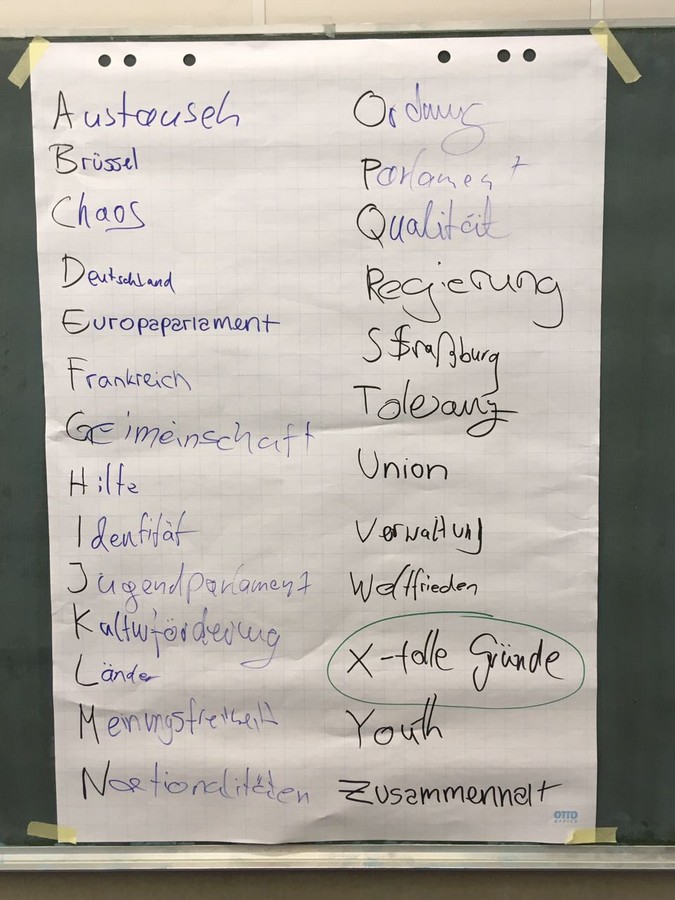 Austausch
Brüssel
Chaos
Deutschland
Europaparlament
Frankreich
Geimeinschaft
Hilfe
Identität
Jugendparlament
Kulturförderung
Länder
Meinungsfreiheit
Nationalitäten
Ordnung
Parlament
Qualität
Regierung
Straßburg
Toleranz
Union
Verwaltung
Weltfrieden
X-tolle Gründe
Youth
Zusammenhalt
OTTO